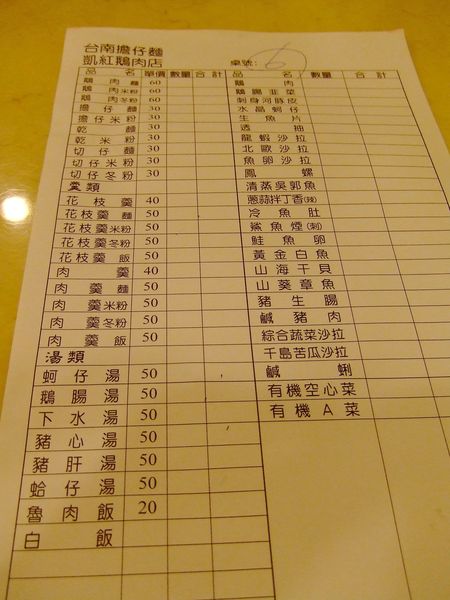 台南擔仔麵
凱紅鵝肉店 桌號: 6
品名 單價 數量 合計
鵝肉麵 60
鵝肉米粉 60
鵝肉冬粉 60
擔仔麵 30
擔仔米粉 30
乾麵 30
乾米粉 30
切仔麵 30
切仔米粉 30
切仔冬粉 30
羹類
花枝羹 40
花枝羹麵 50
花枝羹米粉 50
花枝羹冬粉 50
花枝羹飯 50
肉羹 40
肉羹麵 50
肉羹米粉 50
肉羹冬粉 50
肉羹飯 50
湯類
蚵仔湯 50
鵝腸湯 50
下水湯 50
豬心湯 50
豬肝湯 50
蛤仔湯 50
魯肉飯 20
白飯
品名 數量 合計
鵝肉
鵝腸韭菜
刺身河豚皮
水晶蚵仔
生魚片
透抽
龍蝦沙拉
北歐沙拉
魚卵沙拉
鳳螺
清蒸吳郭魚
蔥蒜拌丁香(辣)
冷魚肚
鯊魚煙(刺)
鮭魚卵
黃金白魚
山海干貝
山葵章魚
豬生腸
鹹豬肉
綜合蔬菜沙拉
千島苦瓜沙拉
鹹蜊
有機空心菜
有機A菜